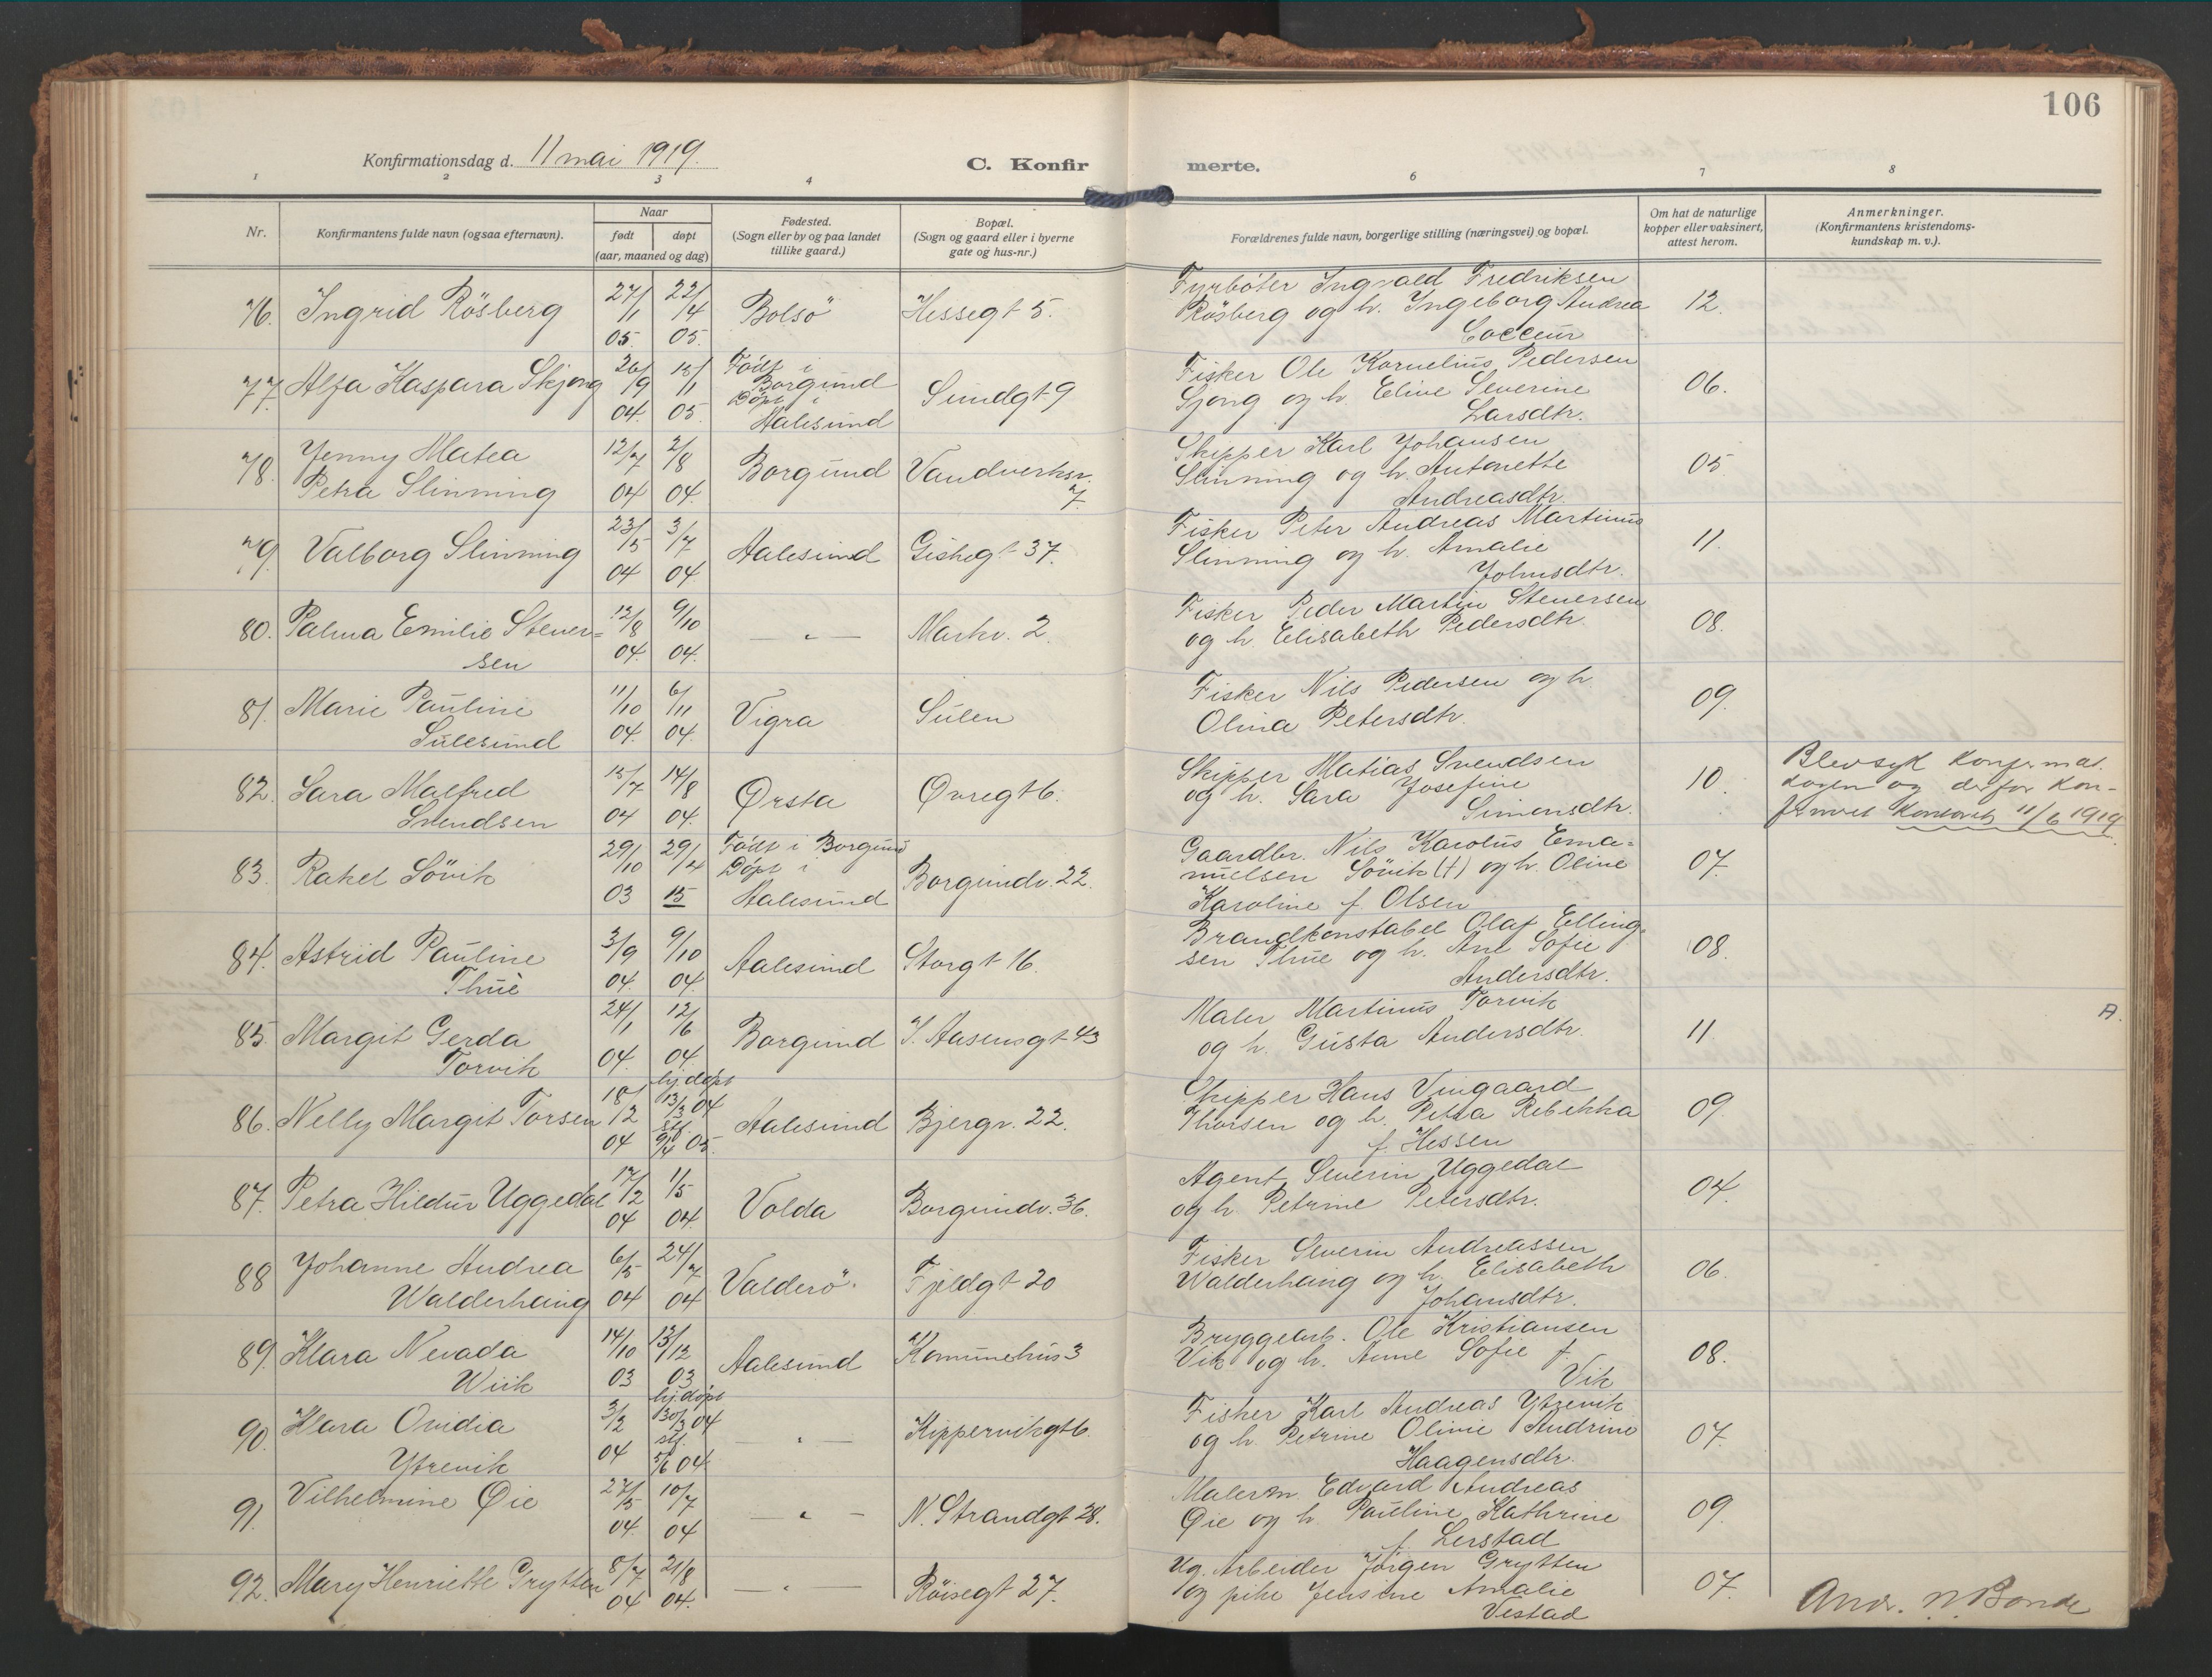 106
Konfirmationsdag d. 11 mai 1919.
C. Konfirmerte.
1 2 3 4 6 7 8
Nr.
Konfirmantens fulde navn (ogsaa efternavn).
Naar
født døpt
(aar, maaned og dag)
Fødested.
(Sogn eller by og paa landet
tillike gaard.)
Bopæl.
(Sogn og gaard eller i byerne
gate og hus-nr.)
Forældrenes fulde navn, borgerlige stilling (næringsvei) og bopæl.
Om hat de naturlige
kopper eller vaksinert,
attest herom.
Anmerkninger.
(Konfirmantens kristendoms-
kundskap m. v.).
76. Ingrid Rösberg 27/1 05. 22/4 05. Bolsö Hessegt 5.
Fyrböter Ingvald Fredriksen
Rösberg og h. Ingeborg Andrea
12.
77. Alfa Kaspara Skjong 26/9 04. 15/1 05 Födt i
Borgund
Döpt i
Aalesund
Sundgt 9
Fisker Ole Kornelius Pedersen
Sjong og h. Eline Severine
Larsdtr.
06.
78. Jenny Matea
Petra Slinning
12/7 04 2/8 04. Borgund Vandverksv.
7.
Skipper Karl Johansen
Slinning og h. Antonette
Andreasdtr.
05
79. Valborg Slinning 23/5 04 3/7 04. Aalesund Giskegt 37.
Fisker Peter Andreas Martinus
Slinning og h. Amalie
Johnsdtr.
11.
80. Palma Emilie Stener=
sen
12/8 04. 9/10 04. — " — Markv. 2.
Fisker Peder Martin Stenersen
og h. Elisabeth Pedersdtr.
08.
81. Marie Pauline
Sulesund
11/10 04. 6/11 04. Vigra Sulen
Fisker Nils Pedersen og h.
Olina Petersdtr.
09.
82. Sara Malfred
Svendsen
15/7 04 14/8 04. Ørsta Øvregt 6.
Skipper Matias Svendsen
og h. Sara Josefine
Simensdtr.
10.
Blev syk konfirmat.
dagen og derfor kon-
firmert 11/6 1919.
83. Rakel Sövik 29/10 03 29/4 15 Födt i Borgund
Döpt i
Aalesund
Borgundv. 22.
Gaardbr. Nils Karolus Ema=
nuelsen Sövik (†) og h. Oline
Karoline f. Olsen
07.
84. Astrid Pauline
Thue
3/9 04. 9/10 04. Aalesund Storgt 16.
Brandkonstabel Olaf Elling-
sen Thue og h. Ane Sofie
Andersdtr.
08.
85. Margit Gerda
Torvik
24/1 04. 12/6 04. Borgund I. Aasensgt 43
Maler Martinus Torvik
og h. Gusta Andersdtr.
11.
A.
86. Nelly Margit Torsen 18/2 04 hj. döpt
13/3 04
stf.
9/4 05. Aalesund Bjergv. 22.
Skipper Hans Vingaard
Thorsen og h. Petra Rebekka
f. Hessen
09.
87. Petra Hildur Uggedal 17/2 04 1/5 04. Volda Borgundv. 36.
Agent Severin Uggedal
og h. Petrine Petersdtr.
04.
88 Johanne Andrea
Walderhaug
6/5 04 24/7 04 Valderö. Fjeldgt 20
Fisker Severin Andreassen
Walderhaug og h. Elisabeth
Johansdtr.
06.
89. Klara Nevada
Wiik
14/10 03 13/12 03 Aalesund Komunehus 3
Bryggearb. Ole Kristiansen
Vik og h. Anne Sofie f.
Vik
08.
90. Klara Ovidia
Ytrevik
3/2 04 hj. döpt
30/3 04
stf.
5/6 04 — " — Kippervikgt 6.
Fisker Karl Andreas Ytrevik
og h. Petrine Olivie Andrine
Haagensdtr.
07.
91. Vilhelmine Øie 27/5 04. 10/7 04 — " — N. Strandgt 28.
Malerm. Edvard Andreas
Øie og h. Pauline Kathrine
f. Lerstad
09.
92. Mary Henriette Grytten 8/7 04 21/8 04. — " — Röisegt 27.
Ug. Arbeider Jörgen Grytten
og pike Jensine Amalie
Vestad
07.
Andr. N. Bonde